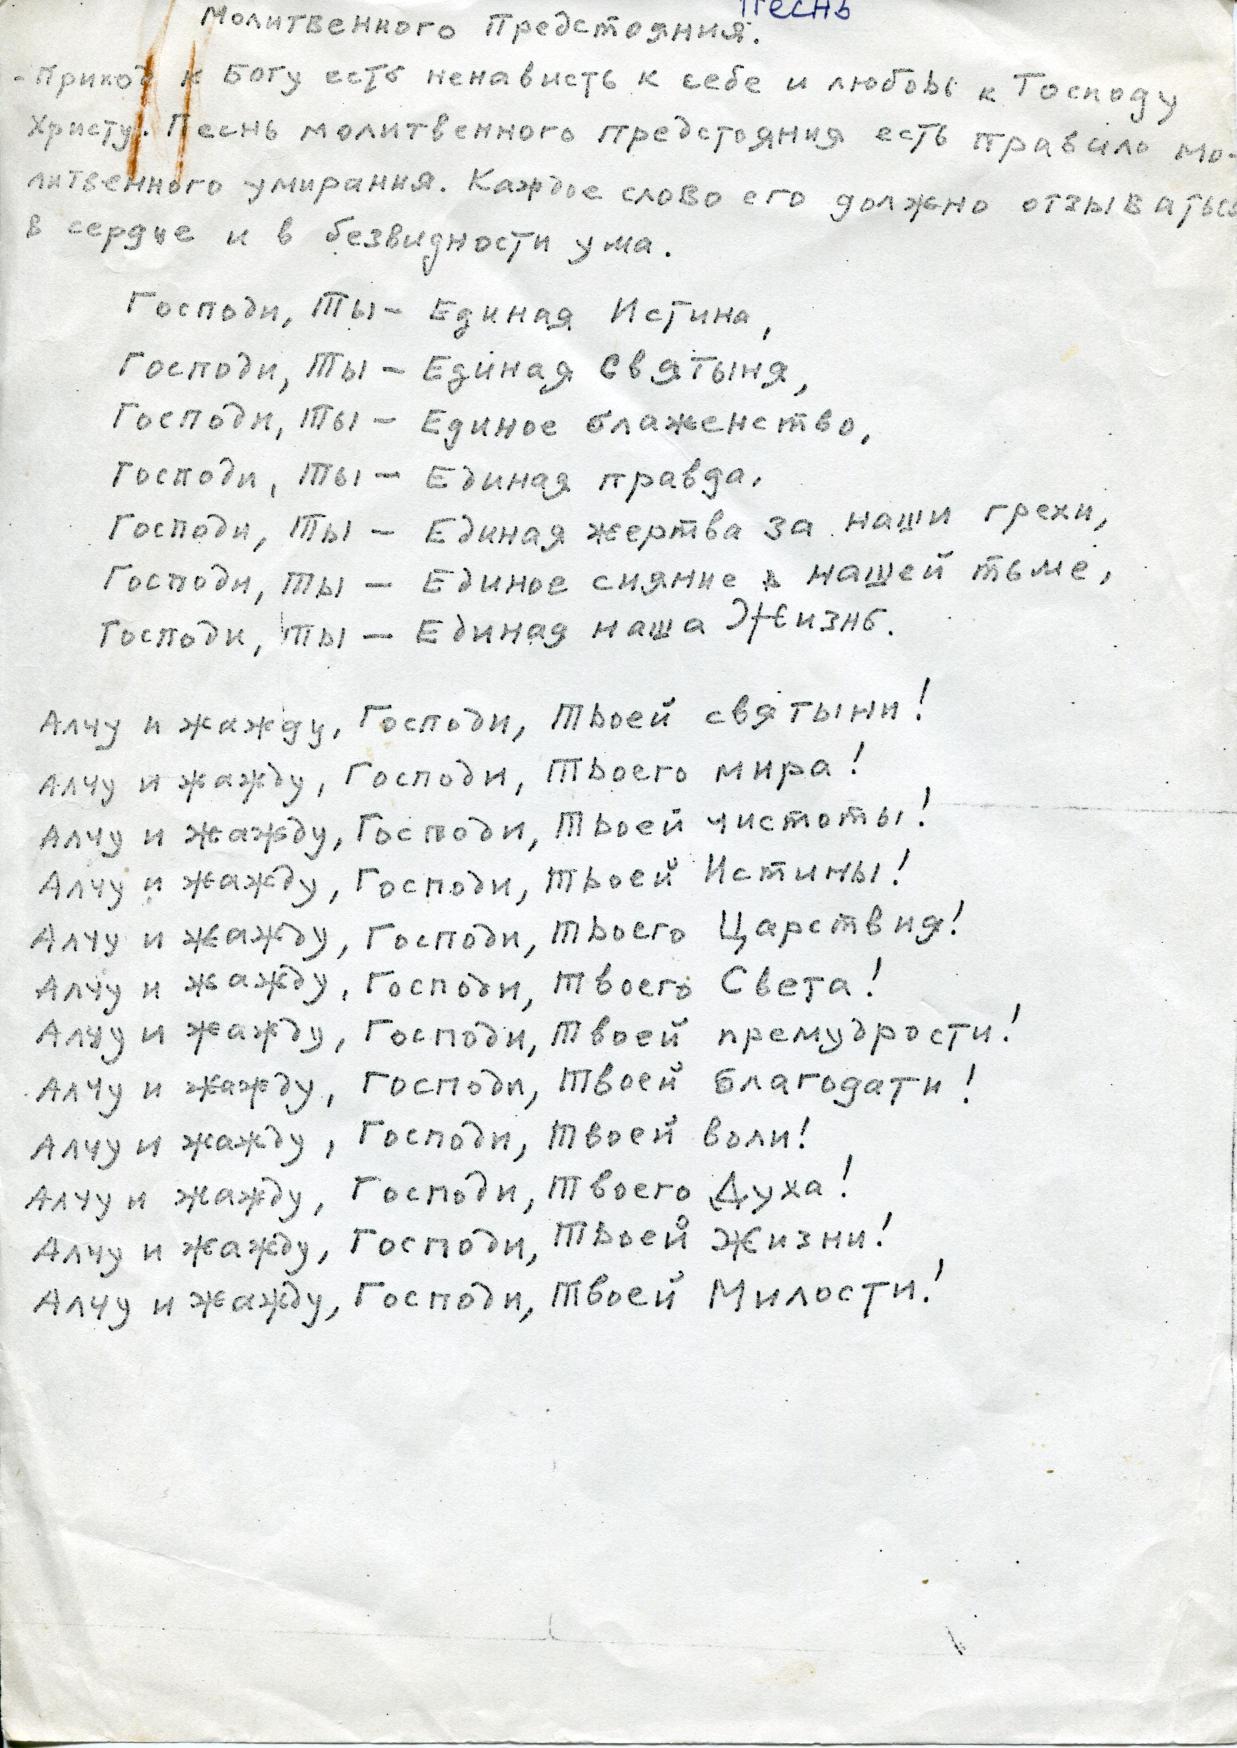 Песнь
Молитвенного Предстояния.
- Приход к Богу есть ненависть к себе и любовь к Господу
Христу. Песнь молитвенного предстояния есть правило мо-
литвенного умирания. Каждое слово его должно отзываться
в сердце и в безвидности ума.
Господи, Ты - Единая Истина,
Господи, Ты - Единая Святыня,
Господи, Ты - Единое блаженство,
Господи, Ты - Единая правда,
Господи, Ты - Единая жертва за наши грехи,
Господи, Ты - Единое сияние в нашей тьме,
Господи, Ты - Единая наша Жизнь.
Алчу и жажду, Господи, Твоей святыни!
Алчу и жажду, Господи, Твоего мира!
Алчу и жажду, Господи, Твоей чистоты!
Алчу и жажду, Господи, Твоей Истины!
Алчу и жажду, Господи, Твоего Царствия!
Алчу и жажду, Господи, Твоего Света!
Алчу и жажду, Господи, Твоей премудрости!
Алчу и жажду, Господи, Твоей благодати!
Алчу и жажду, Господи, Твоей воли!
Алчу и жажду, Господи, Твоего Духа!
Алчу и жажду, Господи, Твоей Жизни!
Алчу и жажду, Господи, Твоей Милости!